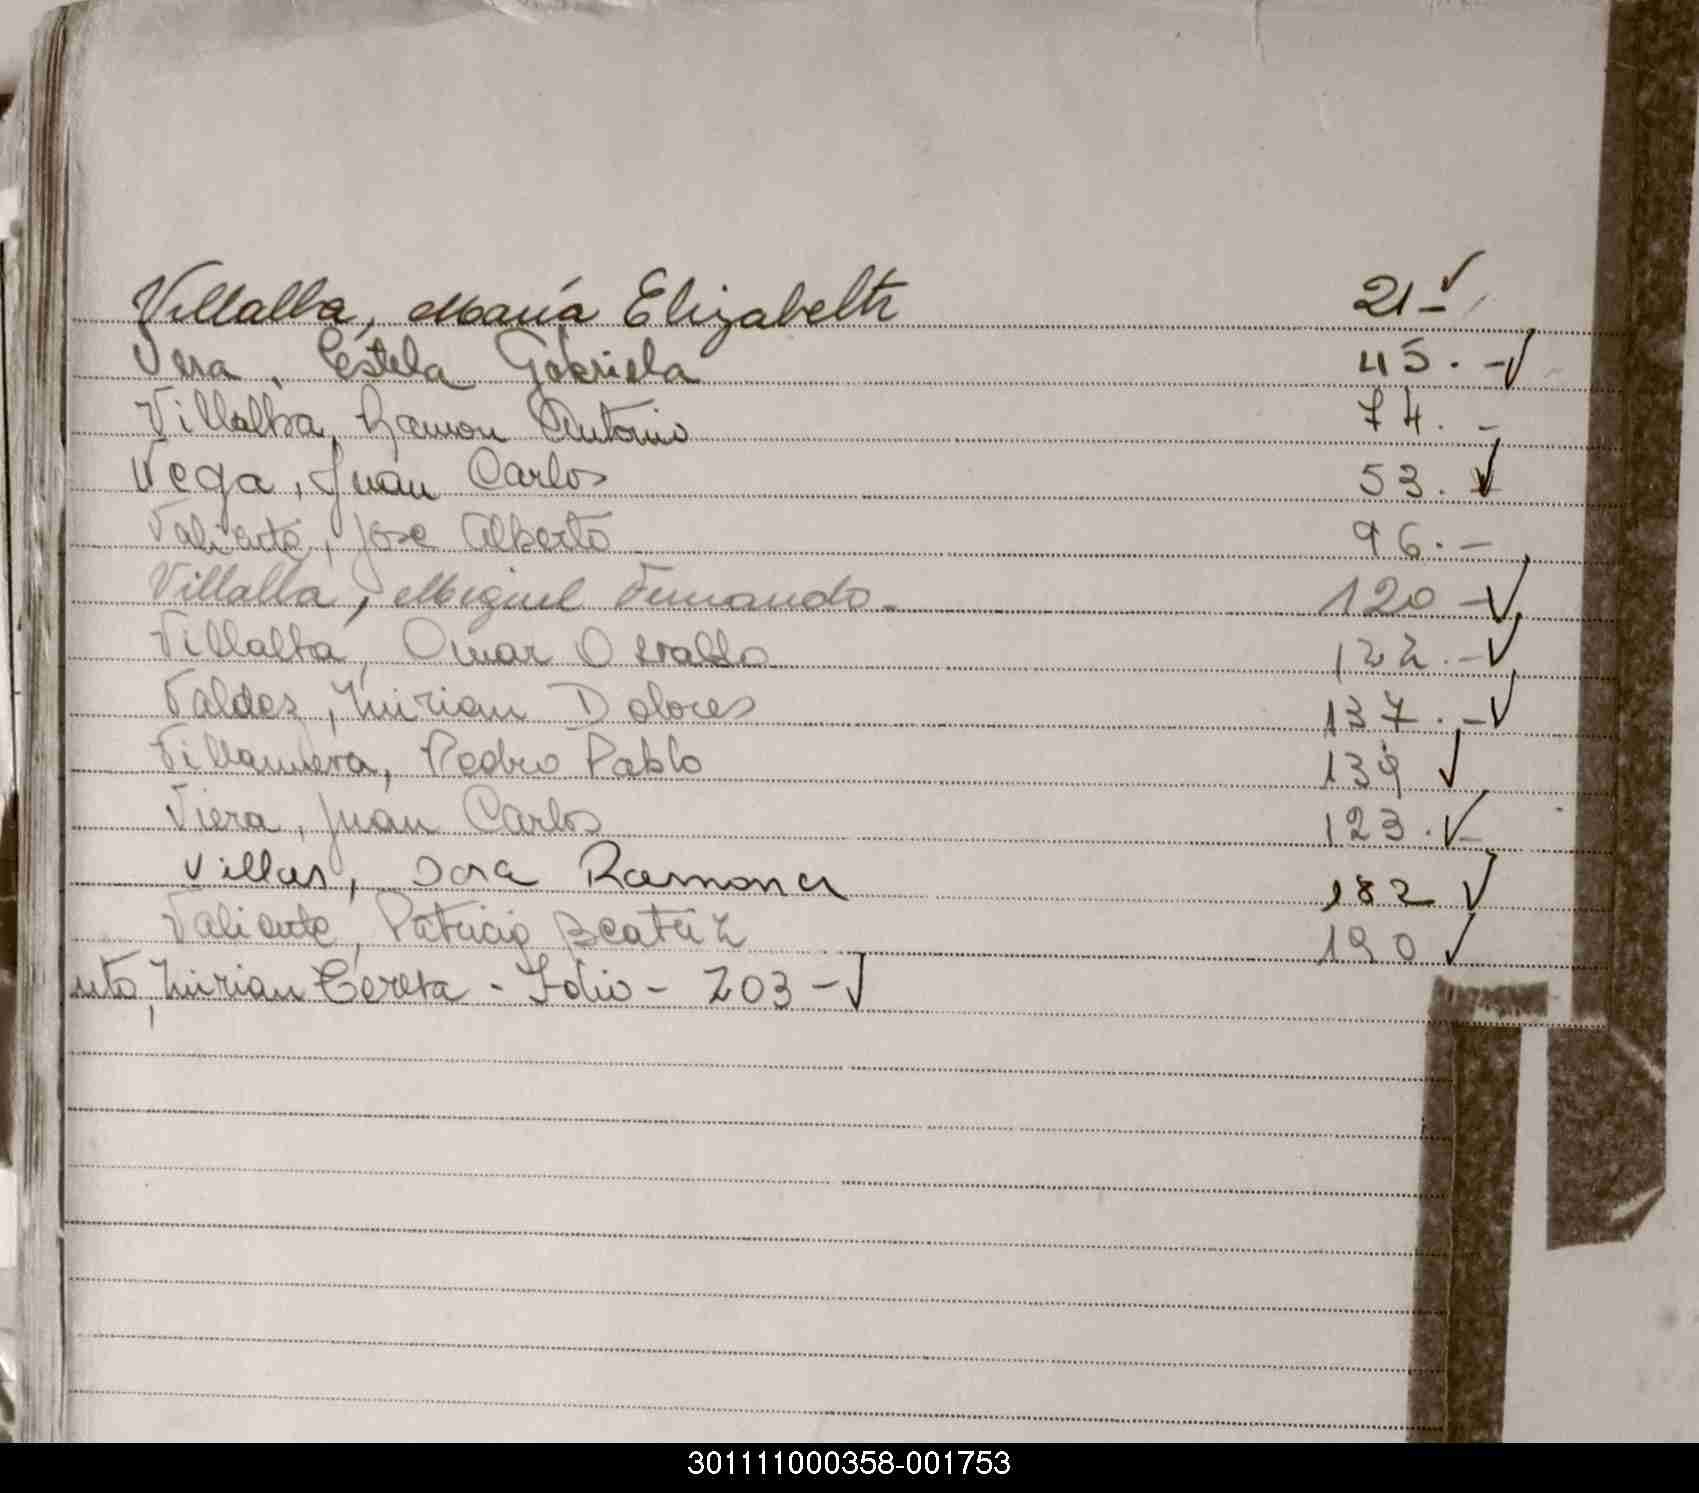 Villalba, María Elizabeth 21-
Vera, Estela Gabriela 45.-
Villalba, Ramon Antonio 74.-
Vega, Juan Carlos 53.-
Valiente, Jose Alberto 96.-
Villalba, Miguel Fernando.- 120-
Villalba, Omar Osvaldo 122.-
Valdez, Mirian Dolores 137.-
Villanueva, Pedro Pablo 139
Viera, Juan Carlos 123.-
Villar, Dora Ramona 182
Valiente, Patricia Beatriz 190
Mirian - Folio - 203-
301111000358-001753